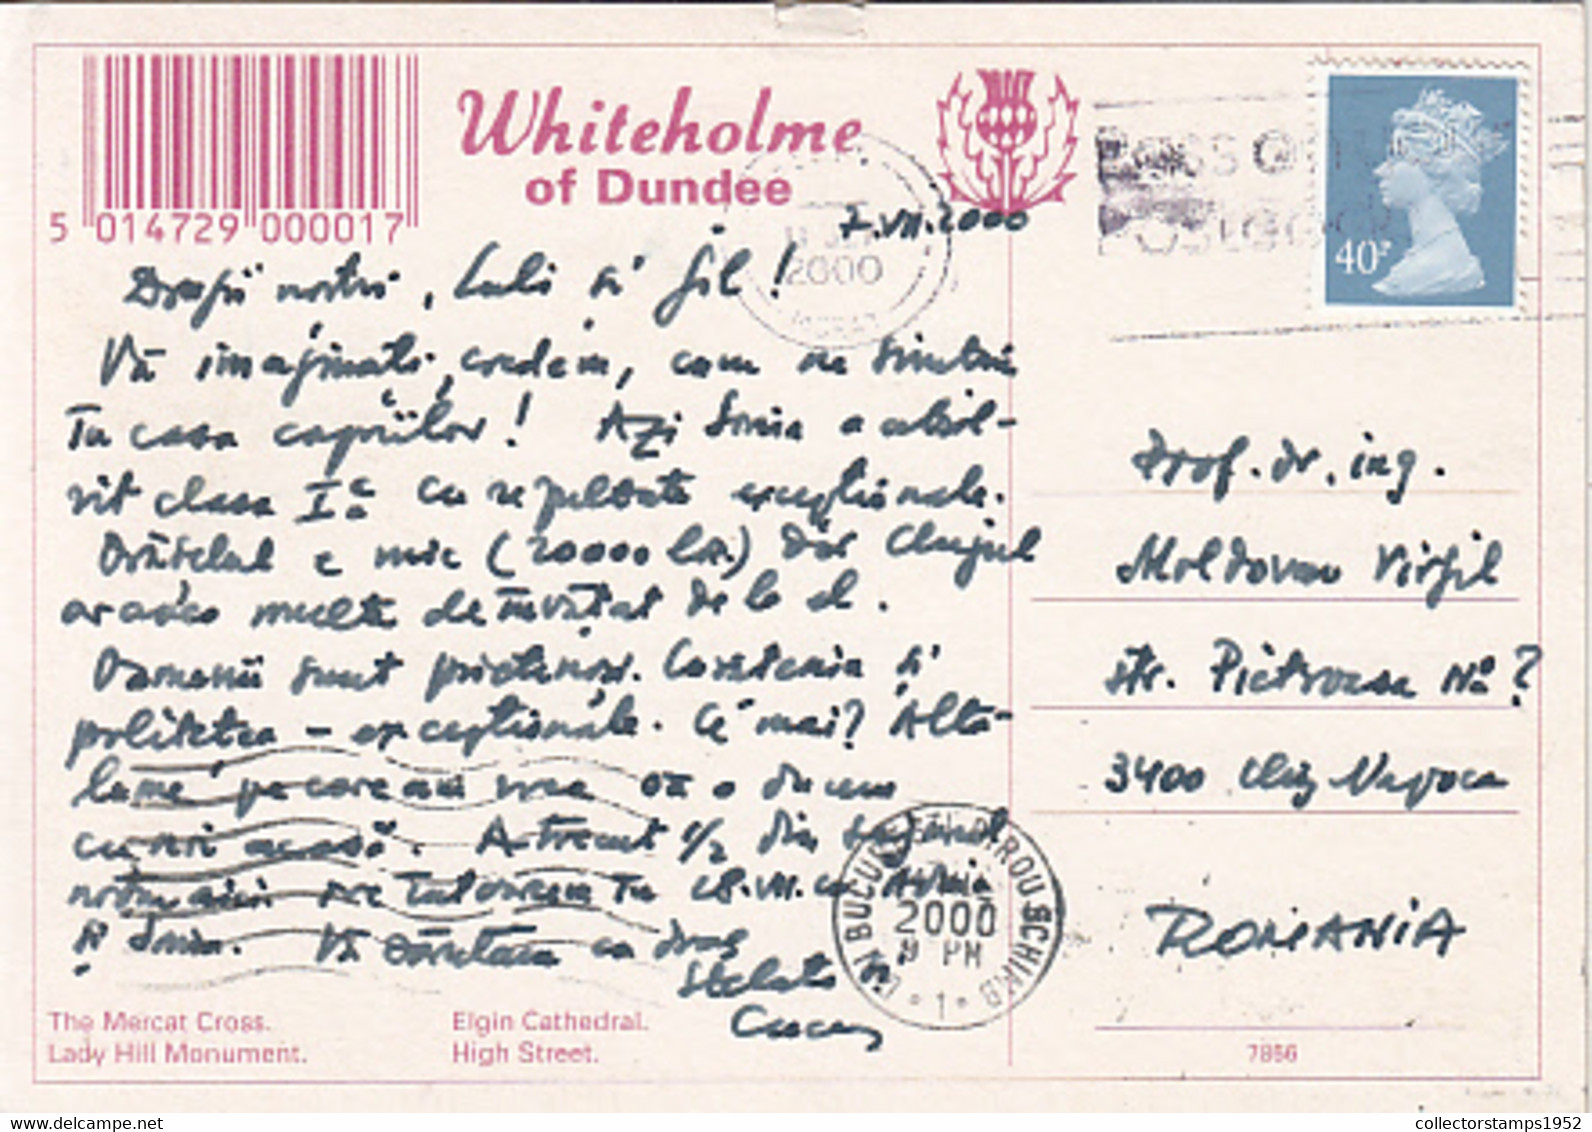 Whiteholme
of Dundee
5 014729 000017
7.VII.2000
2000
40P
Dragii noștri, Luli și Gil!
Vă imaginați, credem, cum ne simțim
în casa copiilor! Azi Sonia a absol-
vit clasa I-a cu rezultate excepționale.
Orășelul e mic (20000 loc.) dar Clujul
ar avea multe de învățat de la el.
Oamenii sunt prietenoși. Curățenia și
politețea - excepționale. Ce mai? Altă
lume pe care am vrea să o ducem
cu noi acasă. A trecut 1/2 din sejurul
nostru aici. Ne întoarcem în 28.VII. cu
și Sonia. Vă sărutăm cu drag
Prof. dr. ing.
Moldovan Virgil
str. Pietroasa No 7
3400 Cluj Napoca
ROMANIA
2000
PM
1
The Mercat Cross.
Lady Hill Monument.
Elgin Cathedral.
High Street.
7856
collectorstamps1952